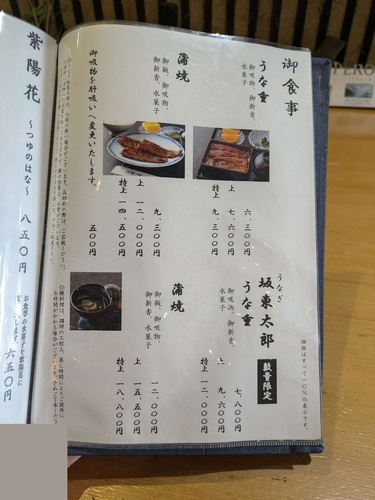 御食事
うな重
御吸物、御新香、
水菓子
六、三〇〇円
上 七、六〇〇円
特上 九、三〇〇円
蒲焼
御飯、御吸物、
御新香、水菓子
九、三〇〇円
上 一二、〇〇〇円
特上 一四、五〇〇円
御吸物を肝吸いへ変更いたします。
五〇〇円
うなぎ
坂東太郎
数量限定
うな重
御吸物、御新香、
水菓子
七、八〇〇円
上 九、六〇〇円
特上 一二、〇〇〇円
蒲焼
御飯、御吸物、
御新香、水菓子
一二、〇〇〇円
上 一五、五〇〇円
特上 一八、八〇〇円
価格はすべて一〇％税込表示です。
紫陽花
～つゆのはな～
八五〇円
お食事の水菓子を紫陽花に
六五〇円